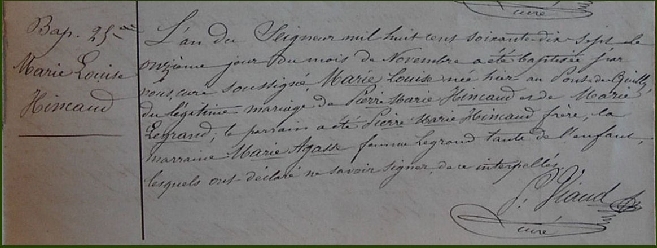 curé
Bap. 25e
Marie Louise
Hincaud
L'an du Seigneur mil huit cent soixante dix sept le
onzième jour du mois de Novembre a été baptisée par
nous, curé soussigné, Marie Louise née hier au
du légitime mariage de Pierre Marie Hincaud et de Marie
Legrand, le parrain a été Pierre Marie Hincaud frère, la
marraine Marie Agasse femme Legrand tante de l'enfant,
lesquels ont déclaré ne savoir signer de ce interpellés.
J. Viaud
curé